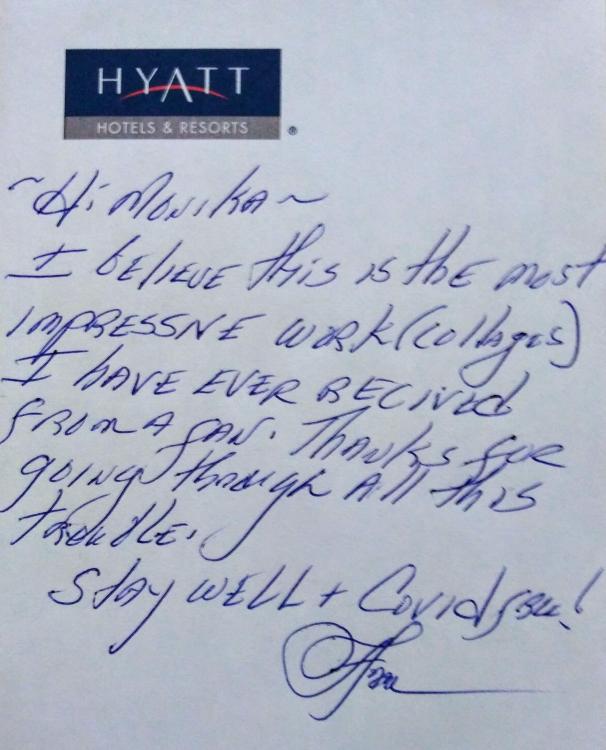 HYATT
HOTELS & RESORTS ®
~Hi Monika~
I believe this is the most
impressive work (collages)
I have ever recived
from a fan. Thanks for
going through all this
trouble.
Stay well + Covid free!